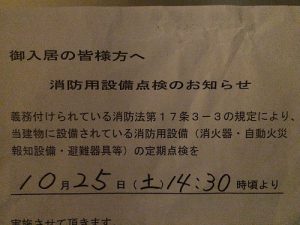 御入居の皆様方へ
消防用設備点検のお知らせ
義務付けられている消防法第17条3-3の規定により、
当建物に設備されている消防用設備（消火器・自動火災
報知設備・避難器具等）の定期点検を
10月25日（土）14:30時頃より
実施させて頂きます